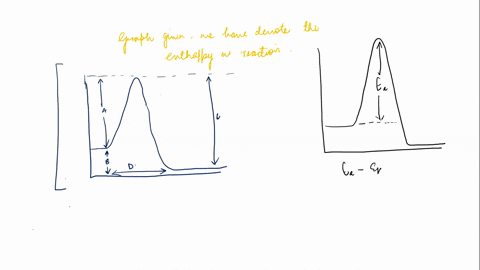 graph given. we have denote the
enthalpy of reaction.
A
B
D
Ea